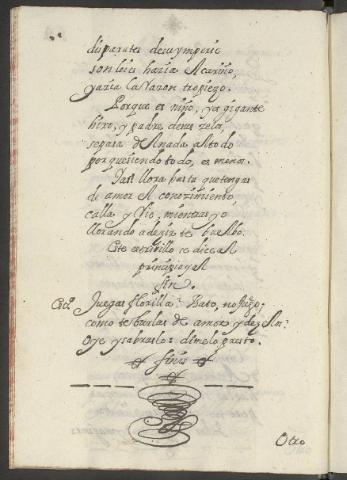 disparates de su ymperio
son leies hacia el cariño,
hacia la razon tropiezo.
Porque es niño, ya gigante
hijo, y padre de sus zelos,
se pasa de Nada, a todo
por queriendo todo, es menos.
Y asi llora hasta que tengas
de amor el conozimiento,
calla y Rie, mientras yo
llorando a dezir te buelbo.
Este estrivillo se dice al
principio y al
fin.
Est.º Juegas florilla? Bato, no juego;
como te burlas de amor y de el
Oye y sabraslo: dimelo presto.
finis
Otro